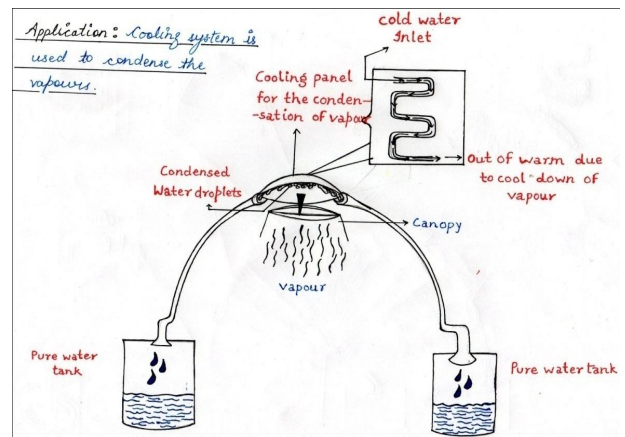 Application: Cooling system is
used to condense the
vapours.
cold water
Inlet
Cooling panel
for the conden-
-sation of vapour
Out of warm due
to cool down of
vapour
Condensed
Water droplets
Canopy
vapour
Pure water
tank
Pure water tank